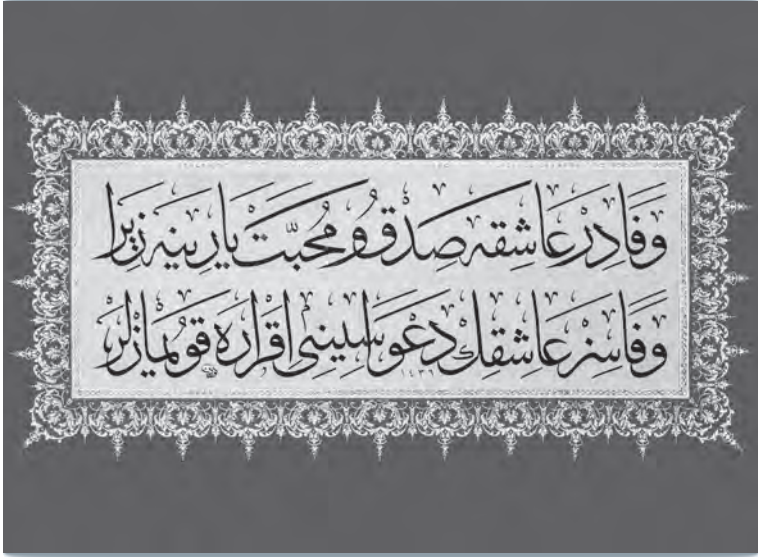 وَفَادِرْ عَاشِقَه صِدْقُ و مُحَبَّتْ يَارِينَه زِيرَا
وَفَاسِزْ عَاشِقِكْ دَعْوَاسِينِى اِقْرَارَه قَويْمَازْلَرْ
١٤٣٦